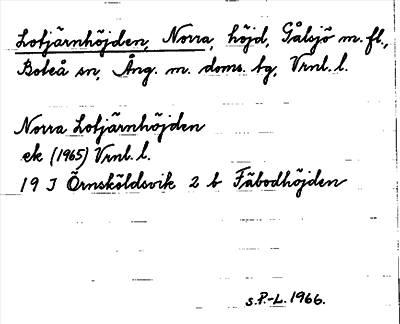 Lotjärnhöjden, Norra, höjd, Gålsjö m. fl.,
Boteå sn, Ång. m. doms. bg, Vrnl. l.
Norra Lotjärnhöjden
ek (1965) Vrnl. l.
19 J Örnsköldsvik 2 b Fäbodhöjden
S.P.-L. 1966.